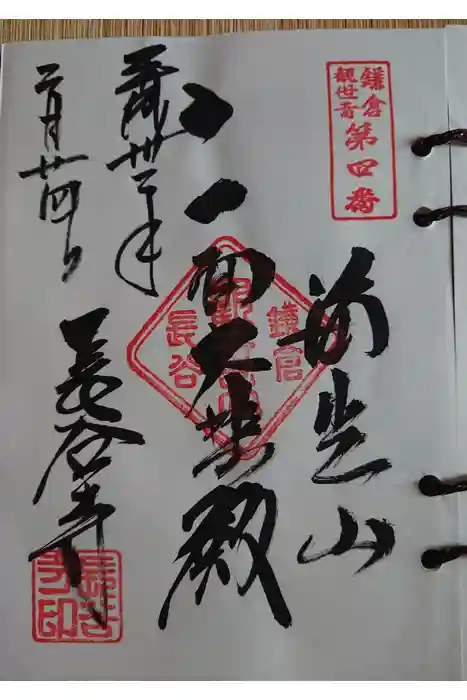 鎌倉
觀世音
第四番
海光山
十一面大悲殿
鎌倉
觀世音
長谷
平成
二月廿四日
長谷寺
長谷寺印